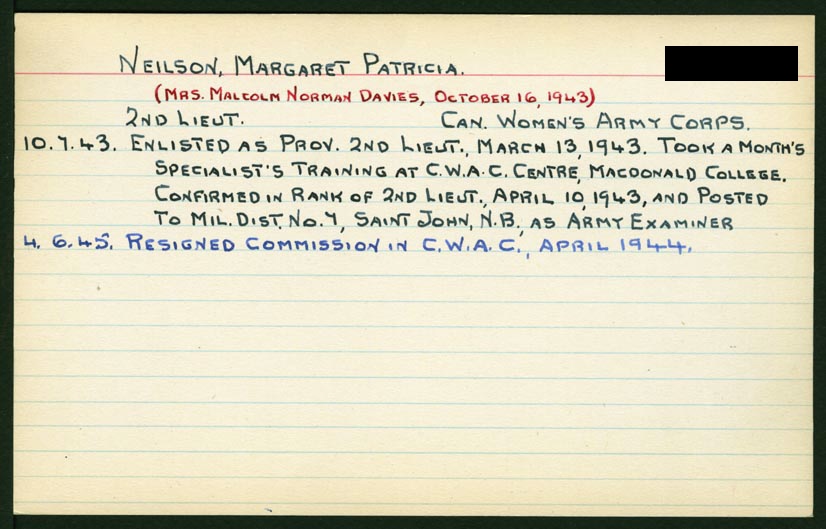 NEILSON, MARGARET PATRICIA.
(MRS. MALCOLM NORMAN DAVIES, OCTOBER 16, 1943)
2ND LIEUT. CAN. WOMEN'S ARMY CORPS.
10.7.43. ENLISTED AS PROV. 2ND LIEUT., MARCH 13, 1943. TOOK A MONTH'S
SPECIALIST'S TRAINING AT C.W.A.C. CENTRE, MACDONALD COLLEGE.
CONFIRMED IN RANK OF 2ND LIEUT., APRIL 10, 1943, AND POSTED
TO MIL. DIST. NO. 7, SAINT JOHN, N.B., AS ARMY EXAMINER
4. 6. 45. RESIGNED COMMISSION IN C.W.A.C., APRIL 1944.